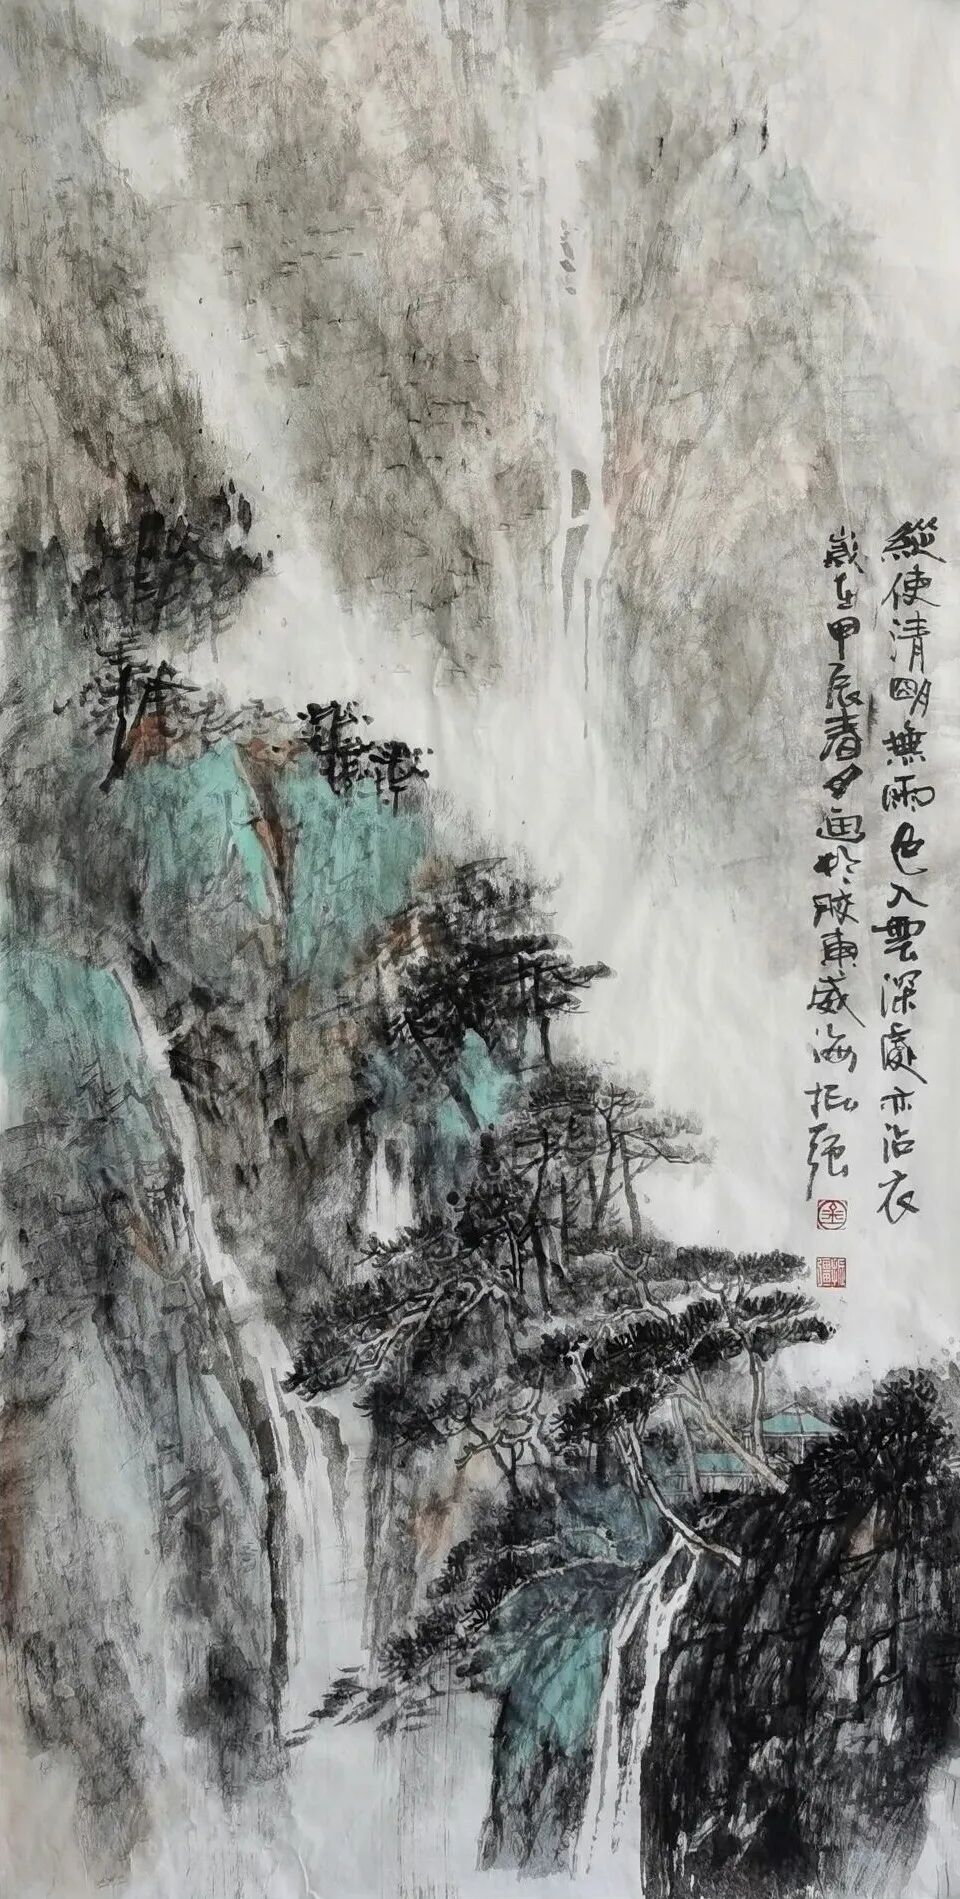 縱使清明無雨色入雲深處亦沾衣
歲在甲辰春月画於胶東威海振强